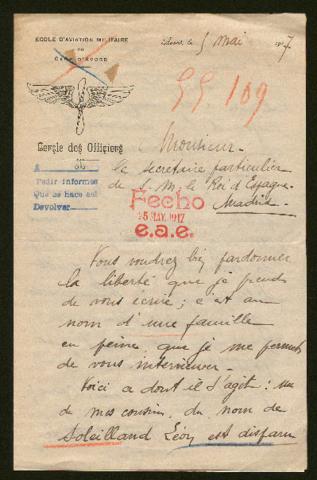 ECOLE D'AVIATION MILITAIRE
DU
CAMP D'AVORD
Avord, le 5 mai 1917
GG 109
Cercle des Officiers
Monsieur
le secrétaire particulier
de S. M. le Roi d'Espagne
Madrid
Pedir informes
Que se hace así
Devolver
Fecho
15 MAY. 1917
e.a.e.
Vous voudrez bien pardonner
la liberté que je prends
de vous écrire ; c'est au
nom d'une famille
en peine que je me permets
de vous
Voici ce dont il s'agit : un
de mes cousins, du nom de
Soleilland Léon est disparu